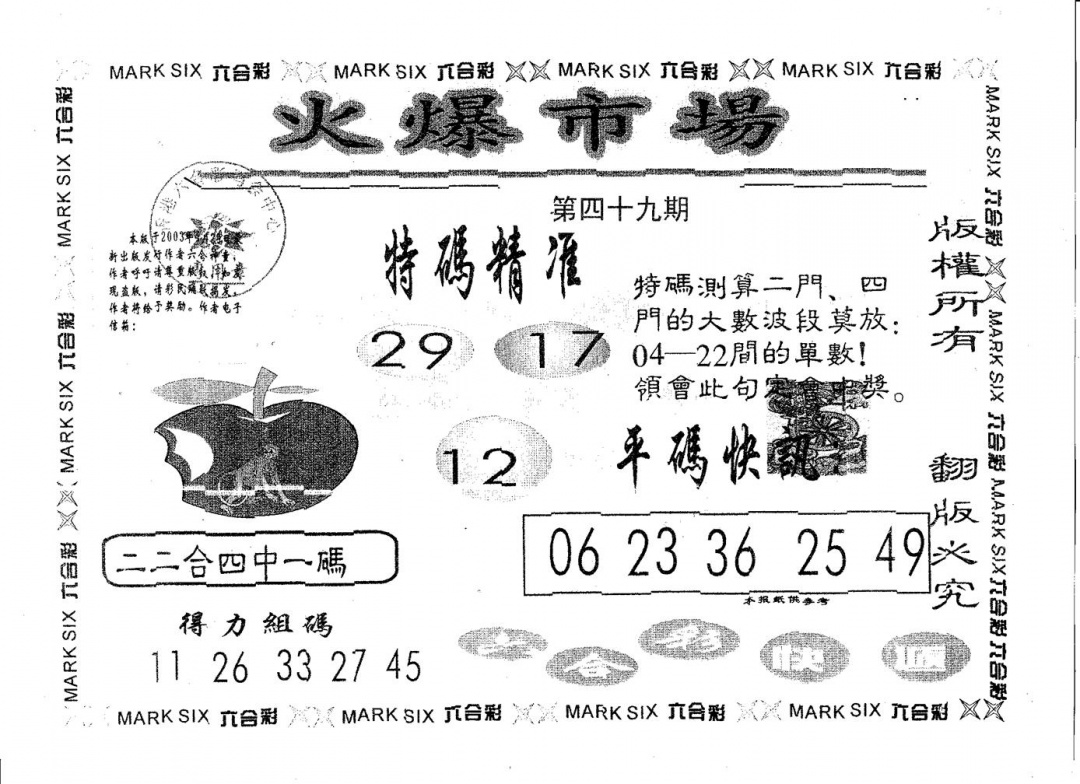 MARK SIX 六合彩 MARK SIX 六合彩 MARK SIX 六合彩 MARK SIX 六合彩
火爆市場
第四十九期
特碼精准
本版于2003年
新出版发行作者六合神童,
作者呼吁请尊重版权,如
现盗版,请彩民踊跃揭发,
作者将给予奖励。作者电子
信箱:
29 17
12
特碼測算二門、四
門的大數波段莫放:
04—22間的單數!
領會此句定會中獎。
平碼快訊
06 23 36 25 49
本报紙供参考
二二合四中一碼
得力組碼
11 26 33 27 45
合彩快
版權所有
翻版必究
MARK SIX 六合彩 MARK SIX 六合彩 MARK SIX 六合彩
MARK SIX 六合彩 MARK SIX 六合彩 MARK SIX 六合彩 六合彩
MARK SIX 六合彩 MARK SIX 六合彩 MARK SIX 六合彩 MARK SIX 六合彩